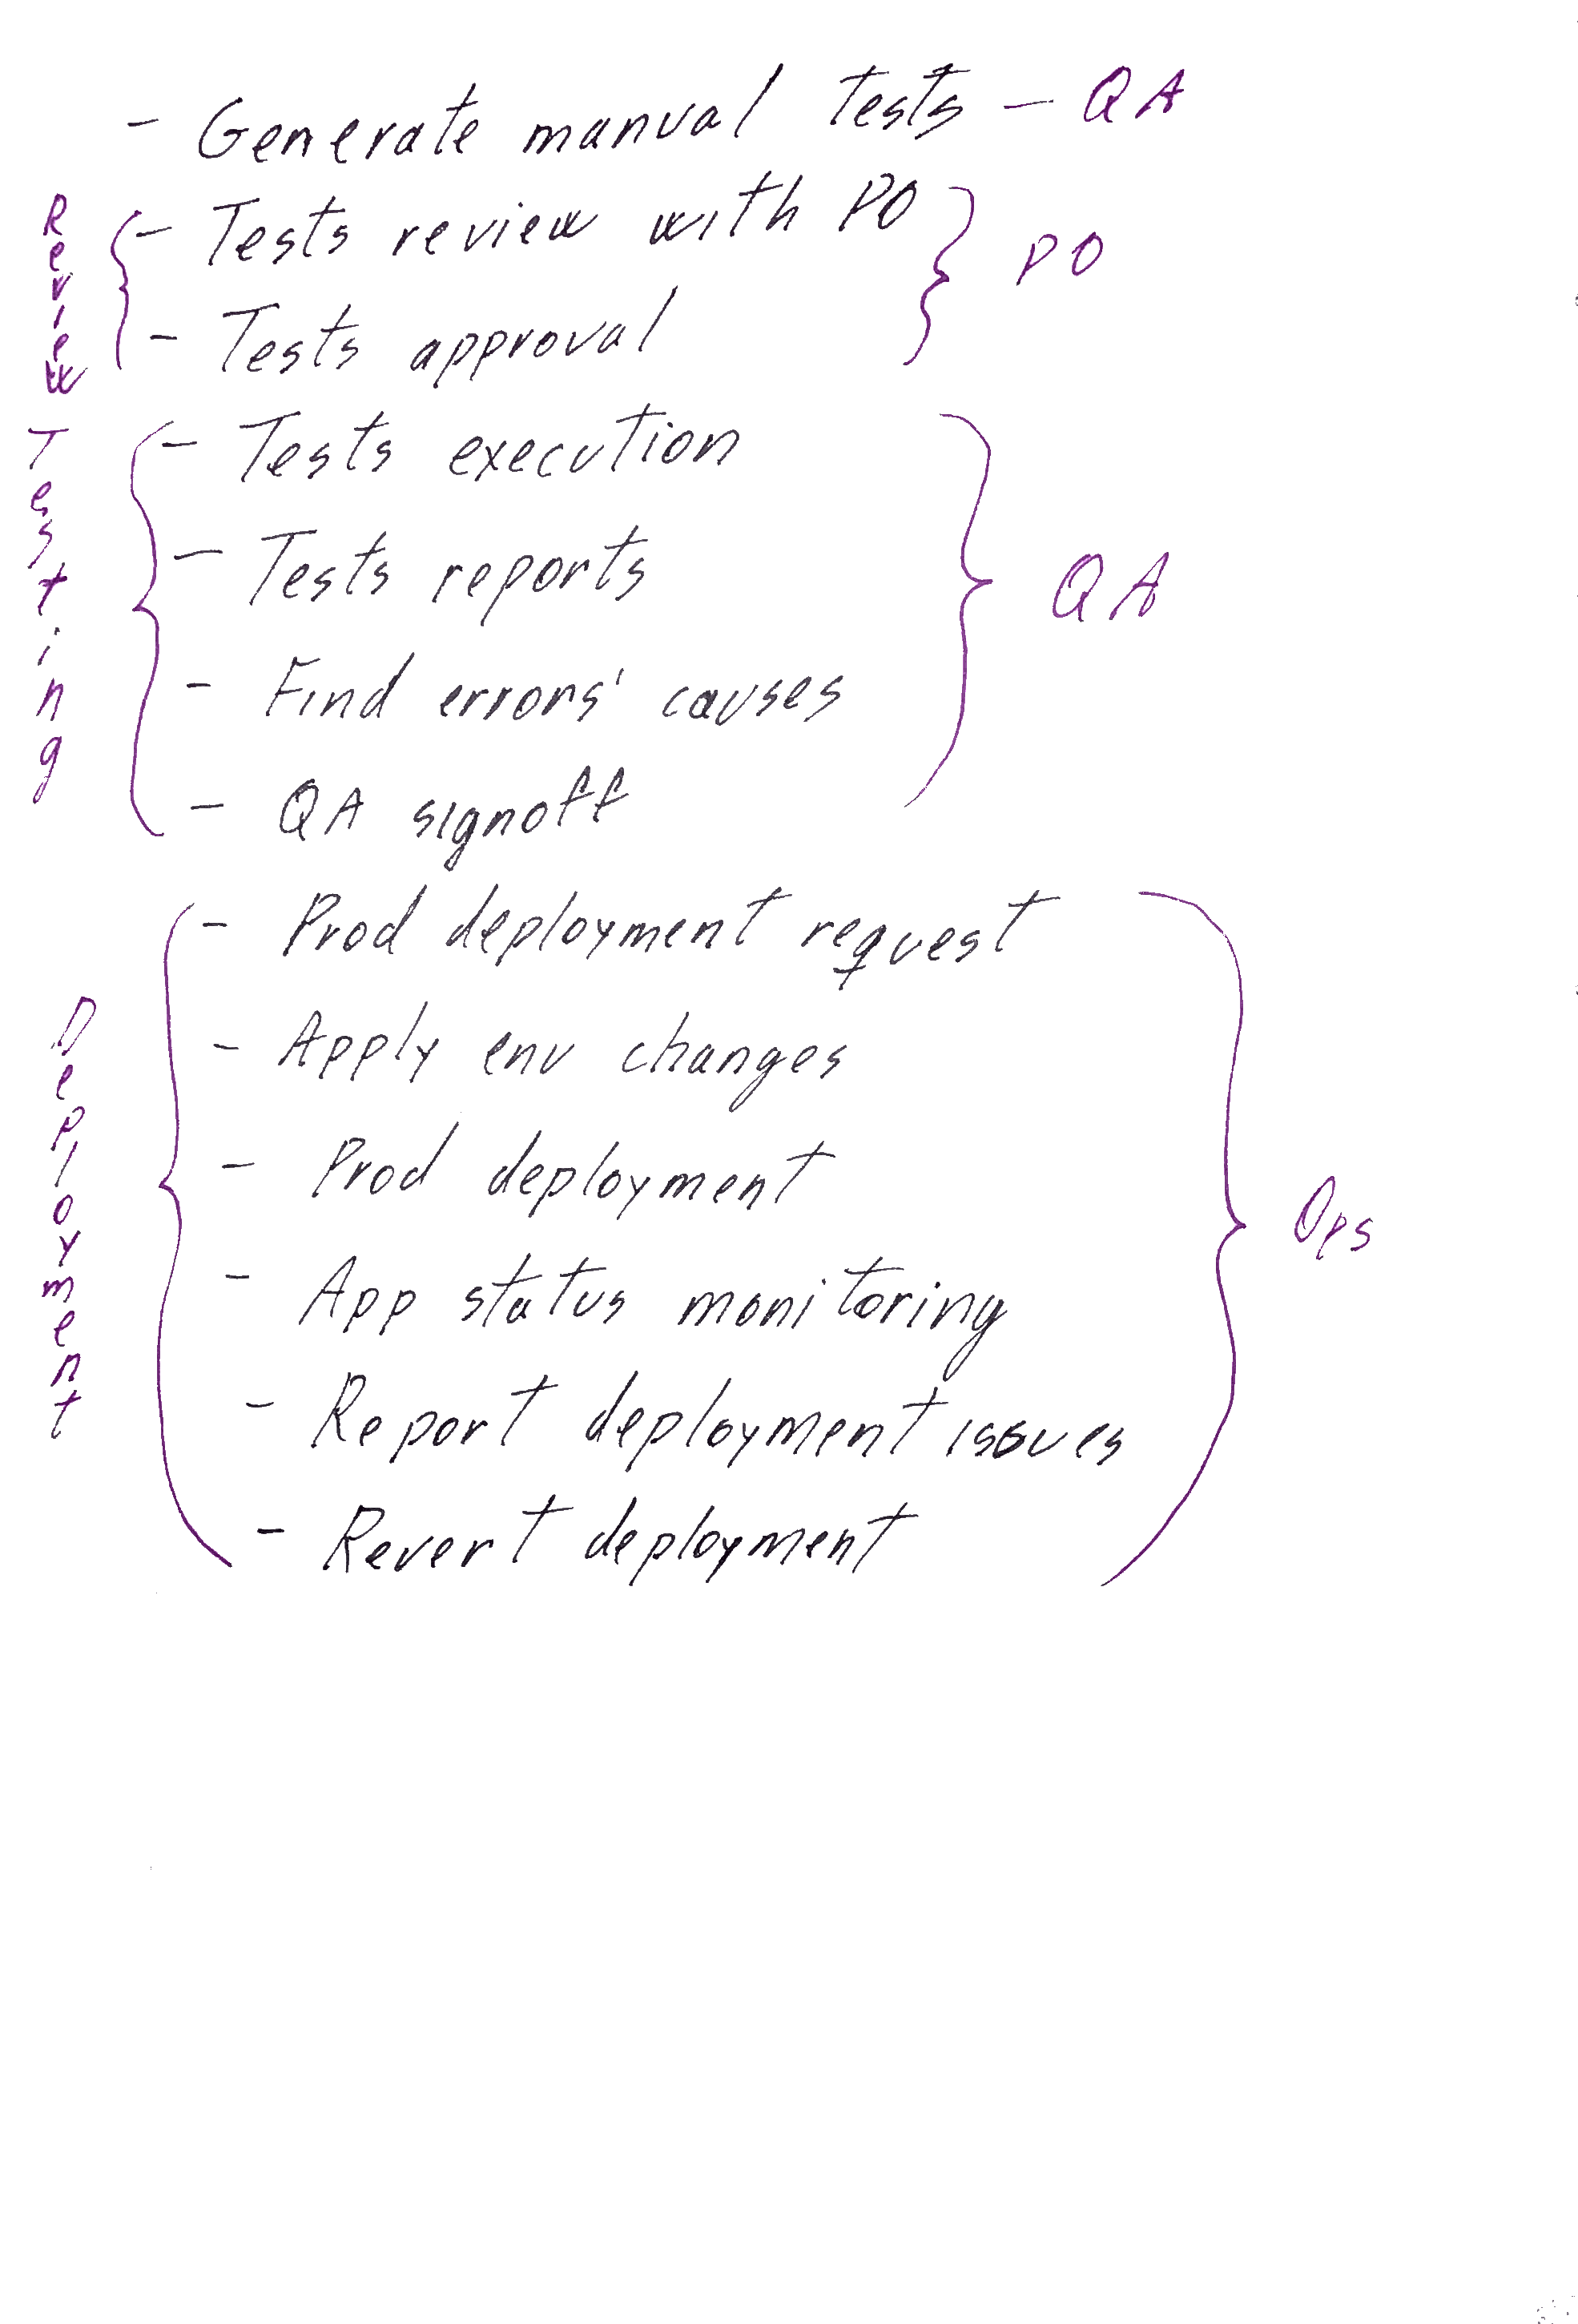 - Generate manual tests - QA
Review
- Tests review with PO
PO
- Tests approval
Testing
- Tests execution
- Tests reports
QA
- Find errors' causes
- QA signoff
Deployment
- Prod deployment request
- Apply env changes
- Prod deployment
Ops
- App status monitoring
- Report deployment issues
- Revert deployment